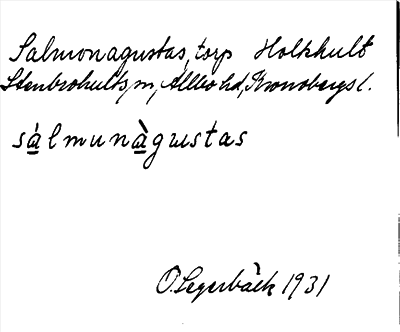 Salmonagustas, torp Holkhult
Stenbrohults, m, Allbo hd, Kronobergs l.
sálmunàgustas
O. Segerbäck 1931